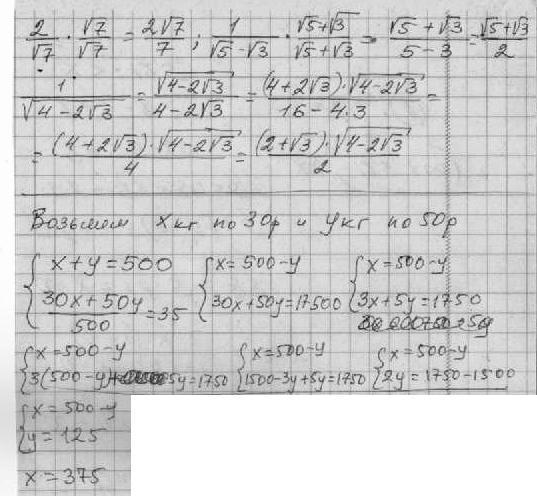 2/√7 · √7/√7 = 2√7/7 ; 1/(√5-√3) · (√5+√3)/(√5+√3) = (√5+√3)/(5-3) = (√5+√3)/2
1/√(4-2√3) = √(4-2√3)/(4-2√3) = (4+2√3)·√(4-2√3)/(16-4·3) =
= (4+2√3)·√(4-2√3)/4 = (2+√3)·√(4-2√3)/2
Возьмем x кг по 30р и y кг по 50р
{ x+y=500 { x=500-y { x=500-y
(30x+50y)/500 =35 30x+50y=17500 3x+5y=1750
{ x=500-y { x=500-y { x=500-y
3(500-y)+5y=1750 1500-3y+5y=1750 2y=1750-1500
{ x=500-y
y=125
x=375